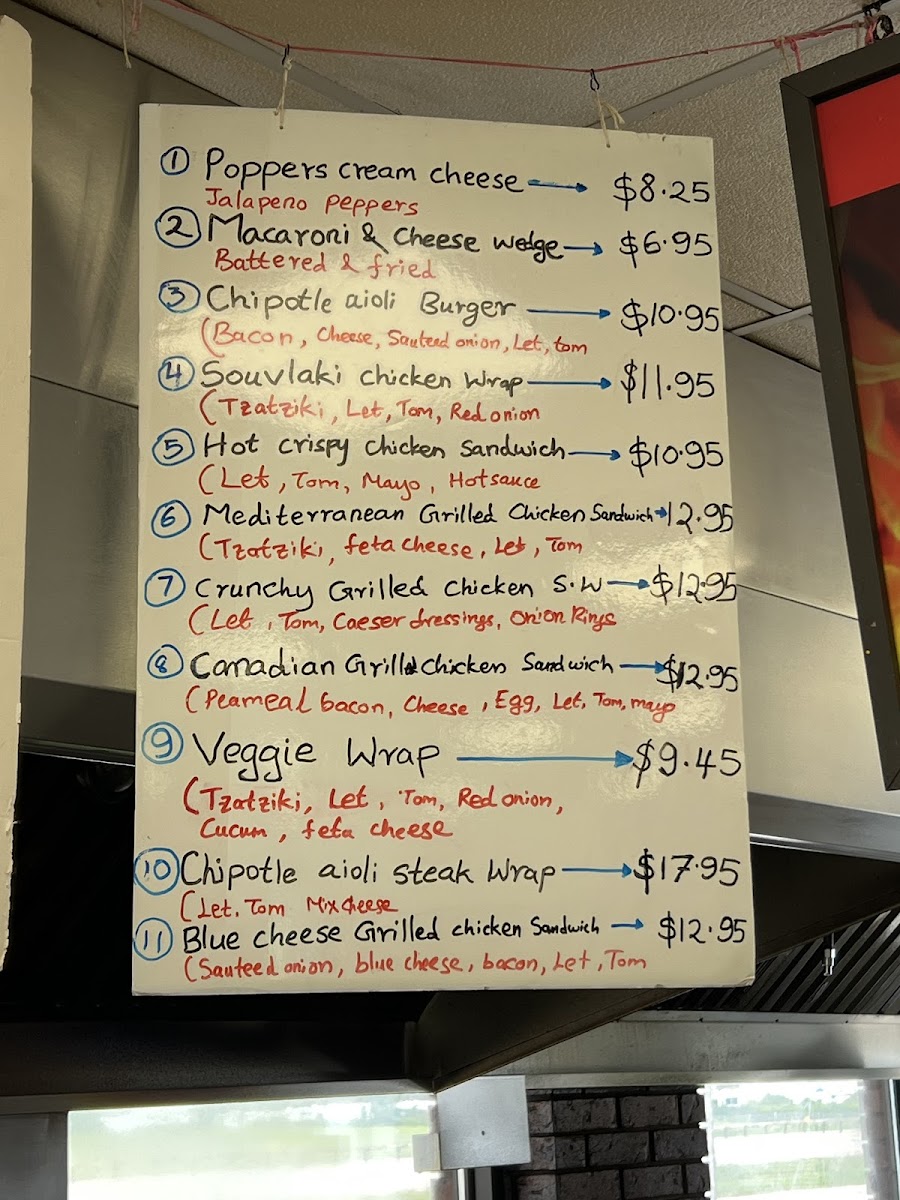 ① Poppers cream cheese → $8.25
Jalapeno Peppers
② Macaroni & Cheese wedge → $6.95
Battered & fried
③ Chipotle aioli Burger → $10.95
(Bacon, Cheese, Sauteed onion, Let, tom
④ Souvlaki chicken Wrap → $11.95
(Tzatziki, Let, Tom, Red onion
⑤ Hot crispy Chicken Sandwich → $10.95
(Let, Tom, Mayo, Hot sauce
⑥ Mediterranean Grilled Chicken Sandwich → 12.95
(Tzatziki, feta cheese, Let, Tom
⑦ Crunchy Grilled Chicken S.W → $12.95
(Let, Tom, Caeser dressings, Onion Rings
⑧ Canadian Grilled chicken Sandwich → $12.95
(Peameal bacon, Cheese, Egg, Let, Tom, mayo
⑨ Veggie Wrap → $9.45
(Tzatziki, Let, Tom, Red onion,
Cucum, feta cheese
⑩ Chipotle aioli steak Wrap → $17.95
(Let. Tom Mix cheese
⑪ Blue cheese Grilled chicken Sandwich → $12.95
(Sauteed onion, blue cheese, bacon, Let, Tom